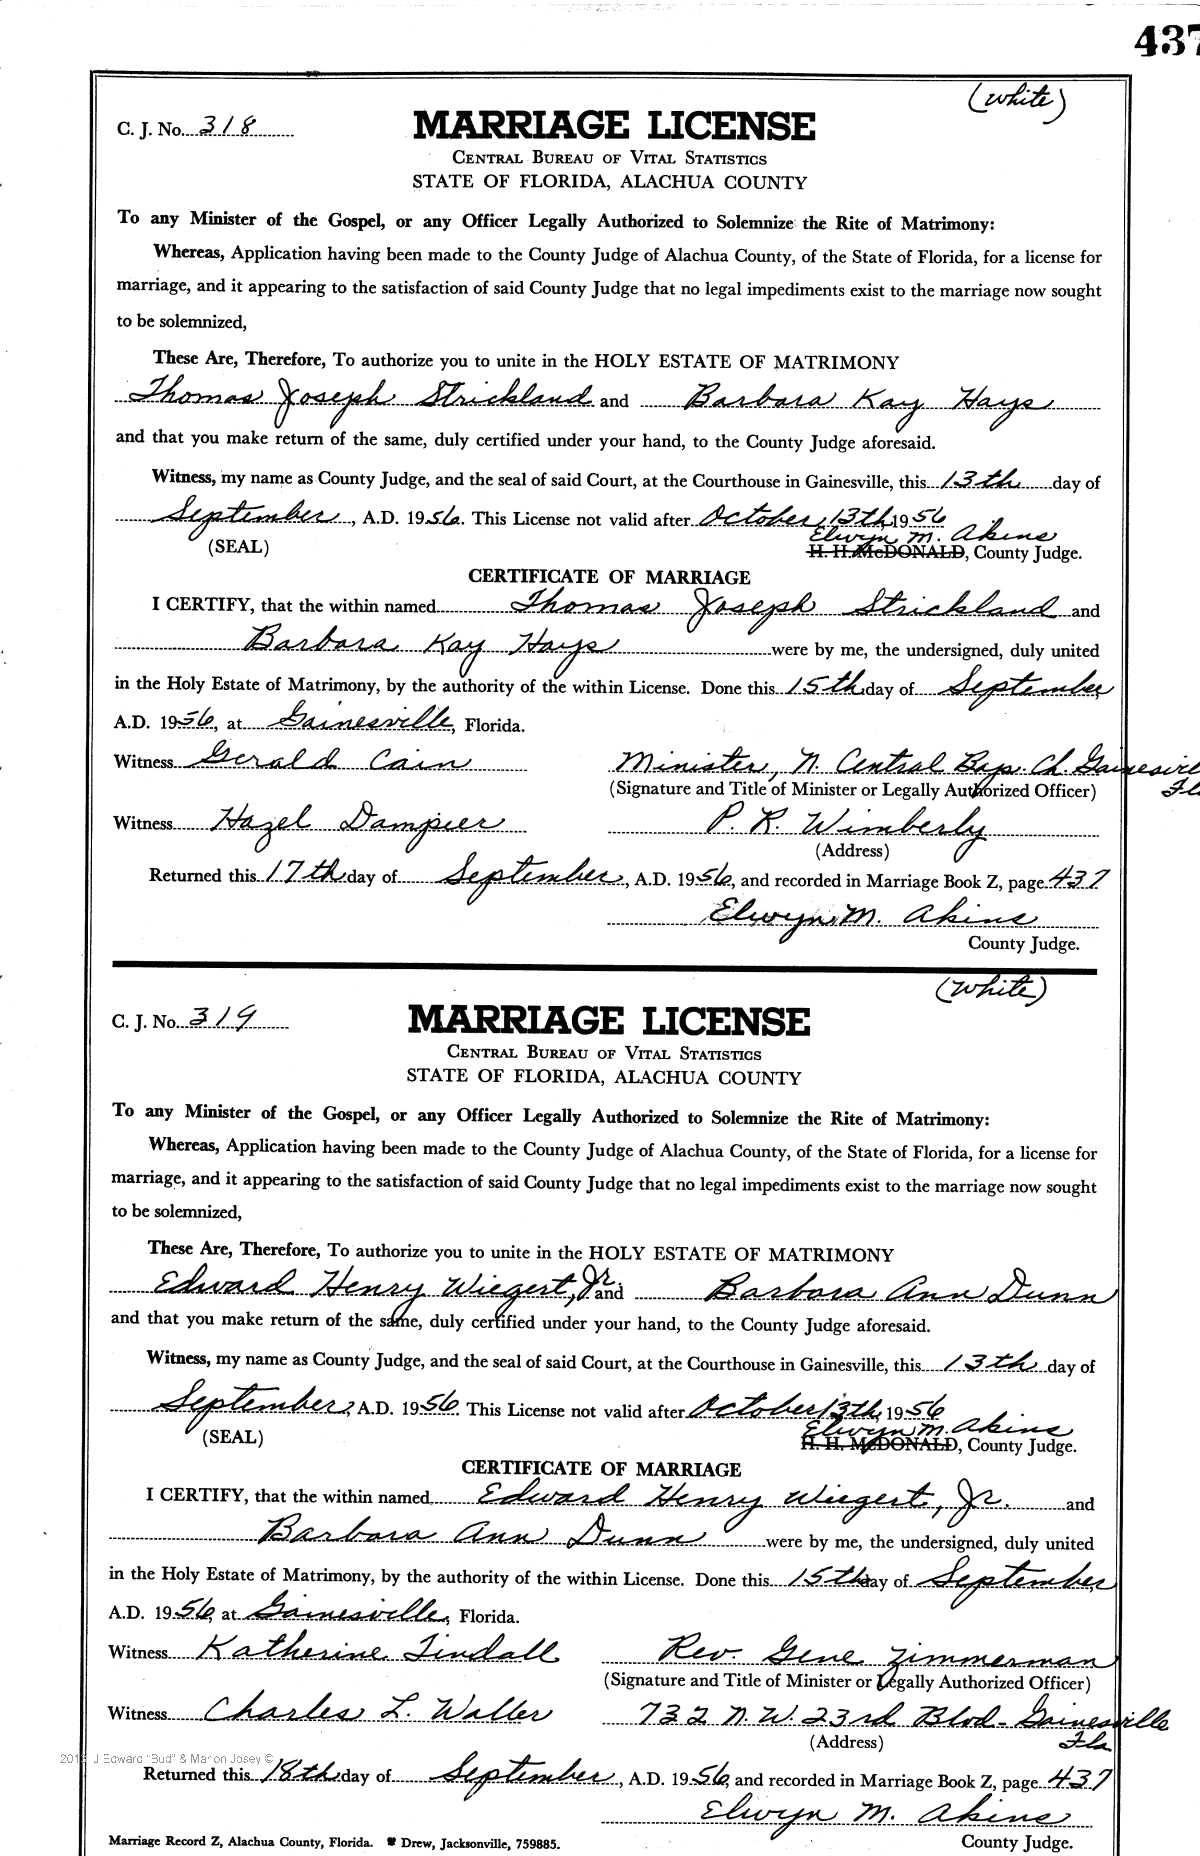 437
(White)
C. J. No. 318
MARRIAGE LICENSE
CENTRAL BUREAU OF VITAL STATISTICS
STATE OF FLORIDA, ALACHUA COUNTY
To any Minister of the Gospel, or any Officer Legally Authorized to Solemnize the Rite of Matrimony:
Whereas, Application having been made to the County Judge of Alachua County, of the State of Florida, for a license for
marriage, and it appearing to the satisfaction of said County Judge that no legal impediments exist to the marriage now sought
to be solemnized,
These Are, Therefore, To authorize you to unite in the HOLY ESTATE OF MATRIMONY
Thomas Joseph Strickland and Barbara Kay Hays
and that you make return of the same, duly certified under your hand, to the County Judge aforesaid.
Witness, my name as County Judge, and the seal of said Court, at the Courthouse in Gainesville, this 13th day of
September, A.D. 1956. This License not valid after October 13th, 1956
Elwyn M. Akins
(SEAL) H. H. McDONALD, County Judge.
CERTIFICATE OF MARRIAGE
I CERTIFY, that the within named Thomas Joseph Strickland and
Barbara Kay Hays were by me, the undersigned, duly united
in the Holy Estate of Matrimony, by the authority of the within License. Done this 15th day of September,
A.D. 1956, at Gainesville, Florida.
Witness Gerald Cain Minister, N. Central Bap. Ch. Gainesville
Fla
(Signature and Title of Minister or Legally Authorized Officer)
Witness Hazel Dampier P. R. Wimberly
(Address)
Returned this 17th day of September, A.D. 1956, and recorded in Marriage Book Z, page 437
Elwyn M. Akins
County Judge.
(White)
C. J. No. 319
MARRIAGE LICENSE
CENTRAL BUREAU OF VITAL STATISTICS
STATE OF FLORIDA, ALACHUA COUNTY
To any Minister of the Gospel, or any Officer Legally Authorized to Solemnize the Rite of Matrimony:
Whereas, Application having been made to the County Judge of Alachua County, of the State of Florida, for a license for
marriage, and it appearing to the satisfaction of said County Judge that no legal impediments exist to the marriage now sought
to be solemnized,
These Are, Therefore, To authorize you to unite in the HOLY ESTATE OF MATRIMONY
Edward Henry Wiegert, Jr. and Barbara Ann Dunn
and that you make return of the same, duly certified under your hand, to the County Judge aforesaid.
Witness, my name as County Judge, and the seal of said Court, at the Courthouse in Gainesville, this 13th day of
September, A.D. 1956. This License not valid after October 13th, 1956
Elwyn M. Akins
(SEAL) H. H. McDONALD, County Judge.
CERTIFICATE OF MARRIAGE
I CERTIFY, that the within named Edward Henry Wiegert, Jr. and
Barbara Ann Dunn were by me, the undersigned, duly united
in the Holy Estate of Matrimony, by the authority of the within License. Done this 15th day of September,
A.D. 1956, at Gainesville, Florida.
Witness Katherine Tindall Rev. Gene Zimmerman
(Signature and Title of Minister or Legally Authorized Officer)
Witness Charles L. Waller 732 N.W. 23rd Blvd- Gainesville
Fla
(Address)
J Edward "Bud" & Marion Josey ©
Returned this 18th day of September, A.D. 1956, and recorded in Marriage Book Z, page 437
Elwyn M. Akins
Marriage Record Z, Alachua County, Florida. Drew, Jacksonville, 759885. County Judge.